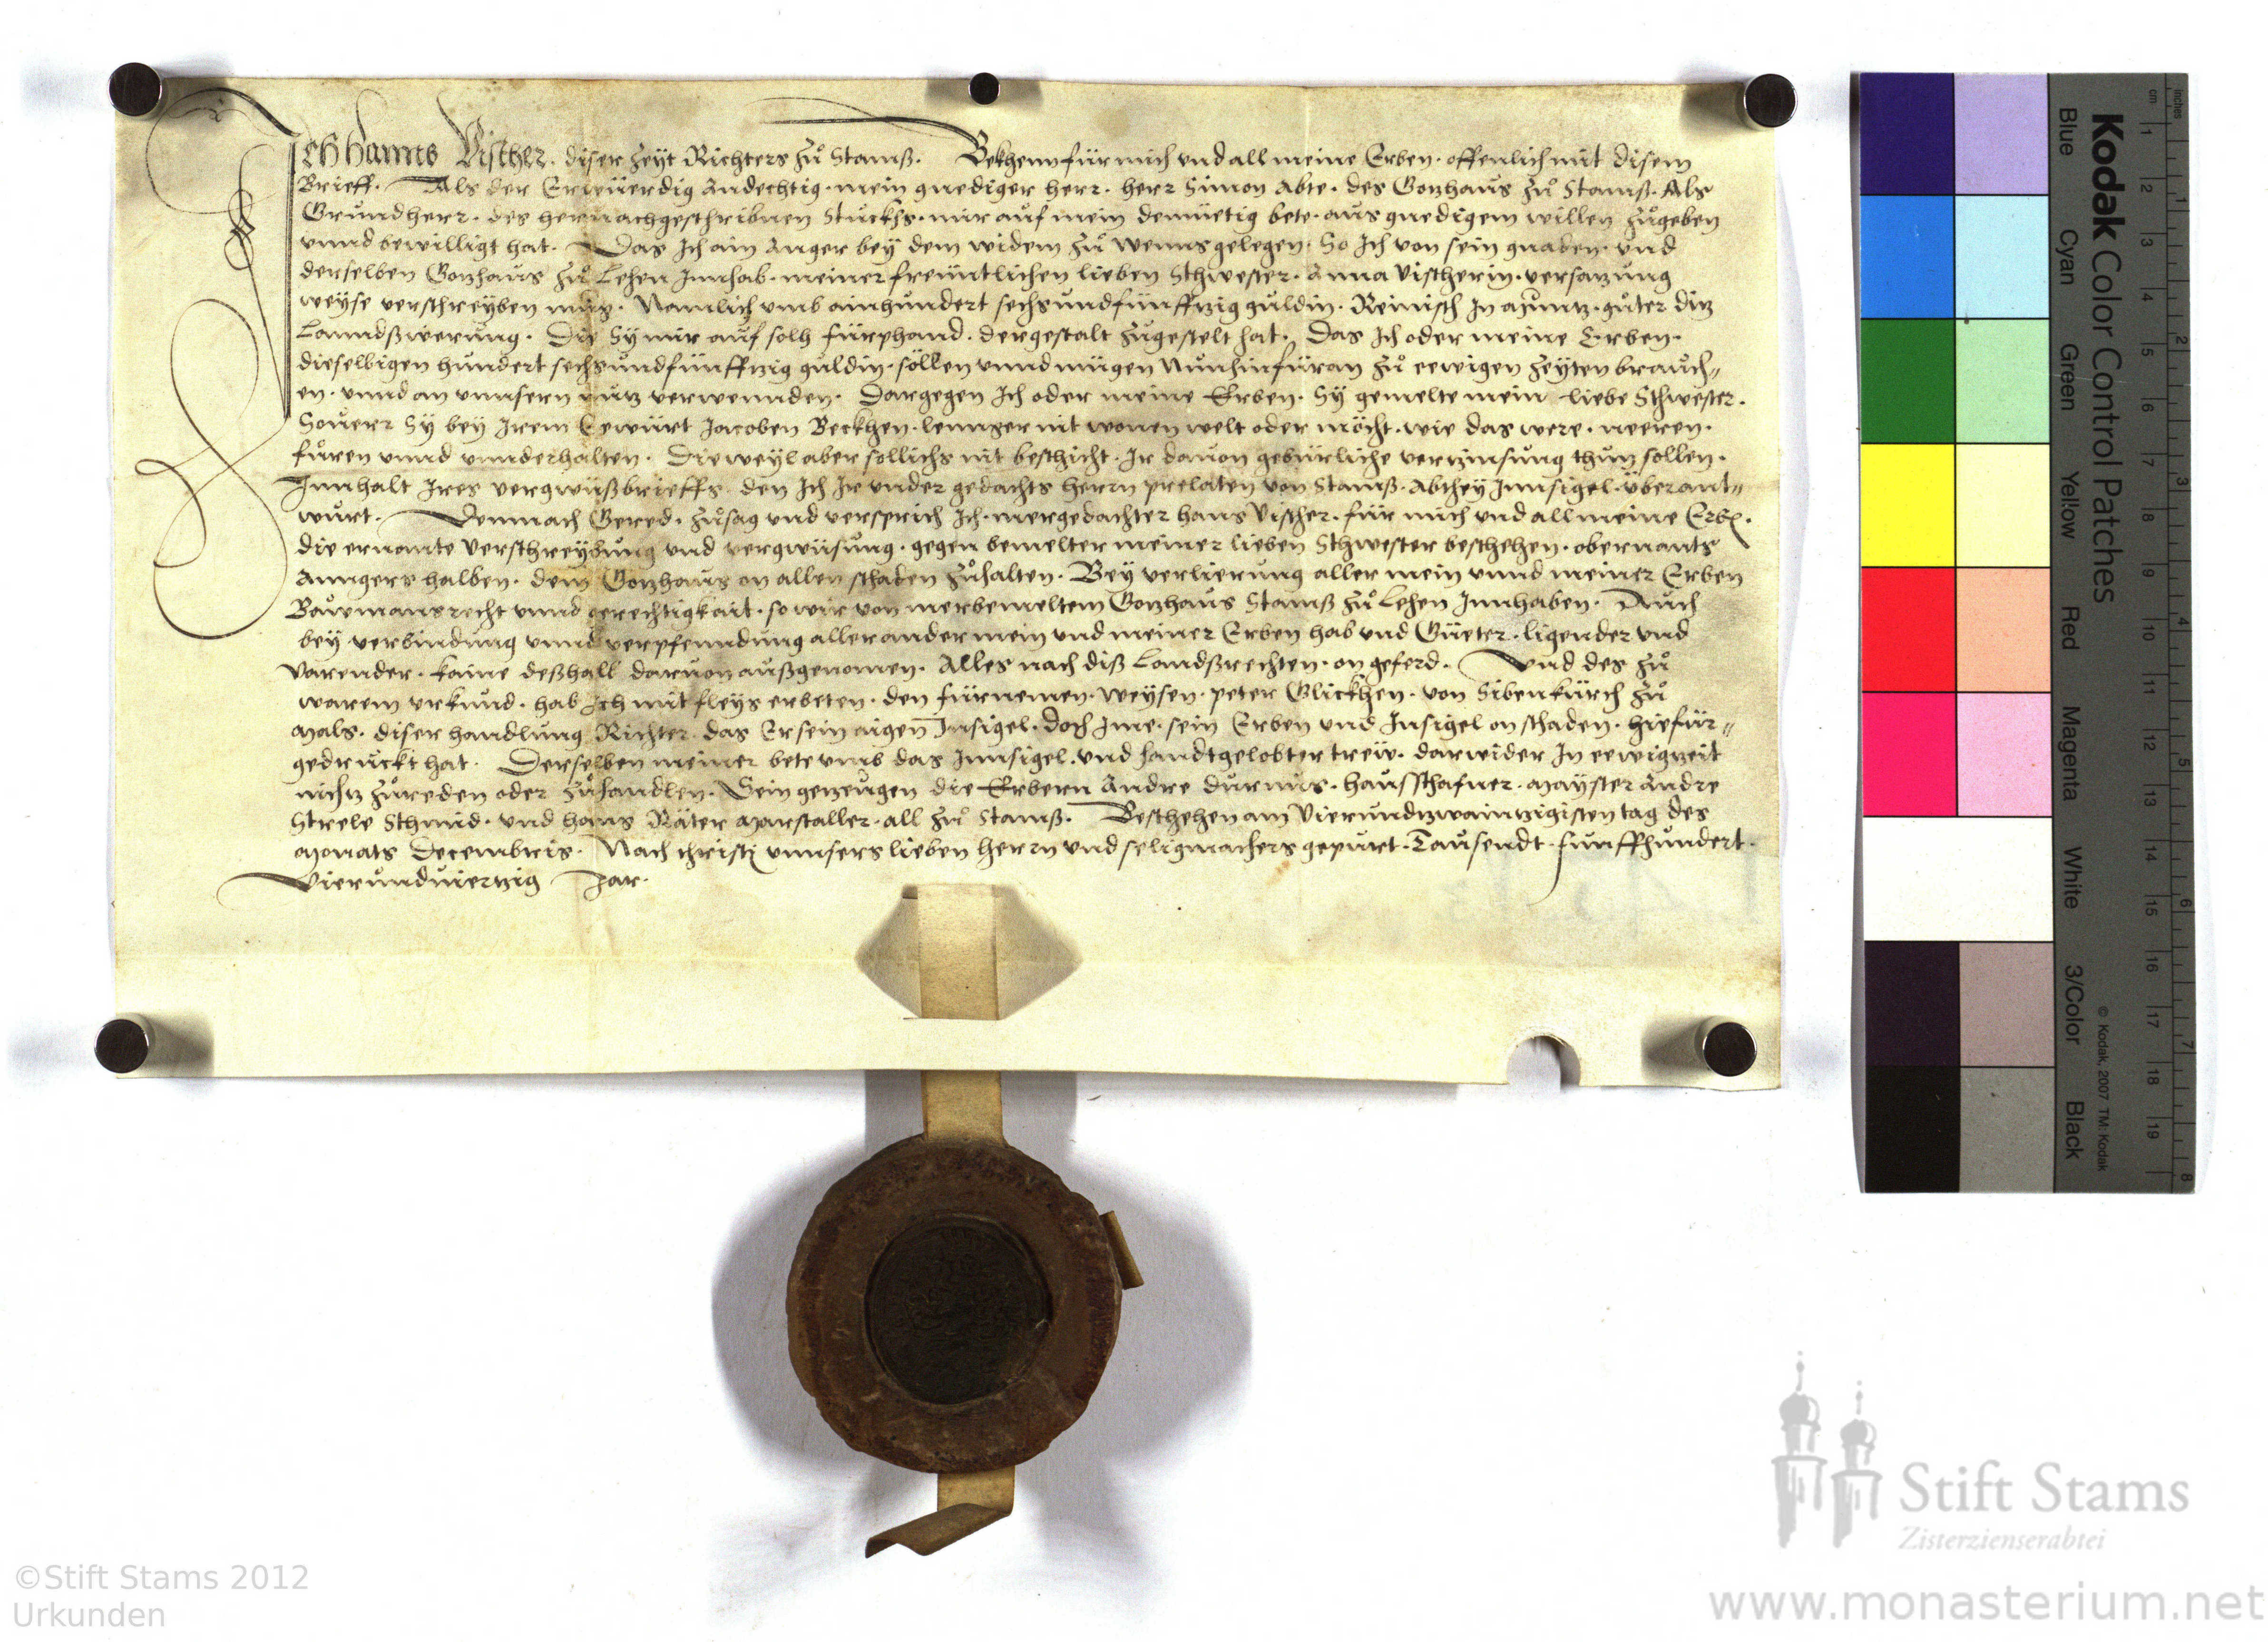 Ich Hanns Vischer. diser Zeyt Richters zů Stamß. Bekhenn für mich vnd all meine Erben. offenlich mit disem
Brieff. Als der Erwüerdig Andechtig. mein gnediger herr. herr Simon Abte. des Gotzhaus zů Stamß. Als
Grundherr. des hernachgeschribnen Stuckhs. mir auf mein demüetig bete. aus gnedigem willen zůgeben
vnnd bewilligt hat. Das Ich ain Anger bey dem widem zů Wenns gelegen. So Ich von sein gnaden. vnd
derselben Gotzhaus zů Lehen Innhab. meiner freuntlichen lieben Schwester. Anna Vischerin. versatzung
weyse verschreyben müg. Namlich vmb ainhundert sechsundfünfftzig guldin. Reinisch In Müntz. gůter ditz
Lanndßwerung. Die Sy mir auf solh fürphand. dergestalt zůgestelt hat. Das Ich oder meine Erben.
dieselbigen hundert sechsundfünfftzig guldin. söllen vnnd mügen Nun hinfüran zů eewigen Zeyten brauch„
en. vnnd an vnnsern nutz verwennden. Dargegen Ich oder meine Erben. Sy gemelte mein liebe Schwester.
Souerr Sy bey Irem Eewürt Jacoben Beckhen. lennger nit wonen welt oder möcht. wie das were. neeren.
fůren vnnd vnnderhalten. Dieweyl aber sollichs nit beschicht. Ir dauon gebürliche vertzinsung thun sollen.
Innhalt Ires vergwüßbrieffs. den Ich Ir vnder gedachts herrn prelaten von Stamß. Abthey Innsigel. überant„
wurt. Demnach Gered. zůsag vnd versprich Ich. mergedachter hans Vischer. für mich vnd all meine Erbn.
die ernante Verschreybung vnd vergwüsung. gegen bemelter meiner lieben Schwester beschehen. obernants
Anngers halben. dem Gotzhaus on allen schaden zůhalten. Bey verlierung aller mein vnnd meiner Erben
Bawmansrecht vnnd gerechtigkait. so wir von merbemeltem Gotzhaus Stamß zů Lehen Innhaben. Auch
bey verbindung vnnd verpfenndung aller ander mein vnd meiner Erben hab vnd Güeter. ligender vnd
varender. kaine deßhall daruon außgenomen. Alles nach diß Landßrechten. on geferd. Vnd des zů
warem vrkund. hab Ich mit fleys erbeten. den fürnemen. Weysen. peter Glickhen. von Sibenkürch zů
Mals. diser handlung Richter. das Er sein aigen Insigel. doch Ime. sein Erben vnd Insigel on schaden. hiefür„
gedruckt hat. Derselben meiner bete vmb das Innsigel. vnd handtgelobter trew. darwider In eewigzeit
nichtz zůreden oder zůhandlen. Sein getzeugen die Erbern Andre Durnus. Hausschafner. Mayster Andre
Strele Schmid. vnd hans Räter Marstaller. all zů Stamß. Beschehen am Vierundtzwaintzigisten tag des
Monats Decembris. Nach christj vnnsers lieben herrn vnd seligmachers gepurt. Tausendt. funffhundert.
Vierundviertzig Jar.
Kodak Color Control Patches
Blue Cyan Green Yellow Red Magenta White 3/Color Black
© Kodak, 2007 TM: Kodak
inches 1 2 3 4 5 6 7 8
cm 1 2 3 4 5 6 7 8 9 10 11 12 13 14 15 16 17 18 19
Stift Stams
Zisterzienserabtei
©Stift Stams 2012
Urkunden
www.monasterium.net